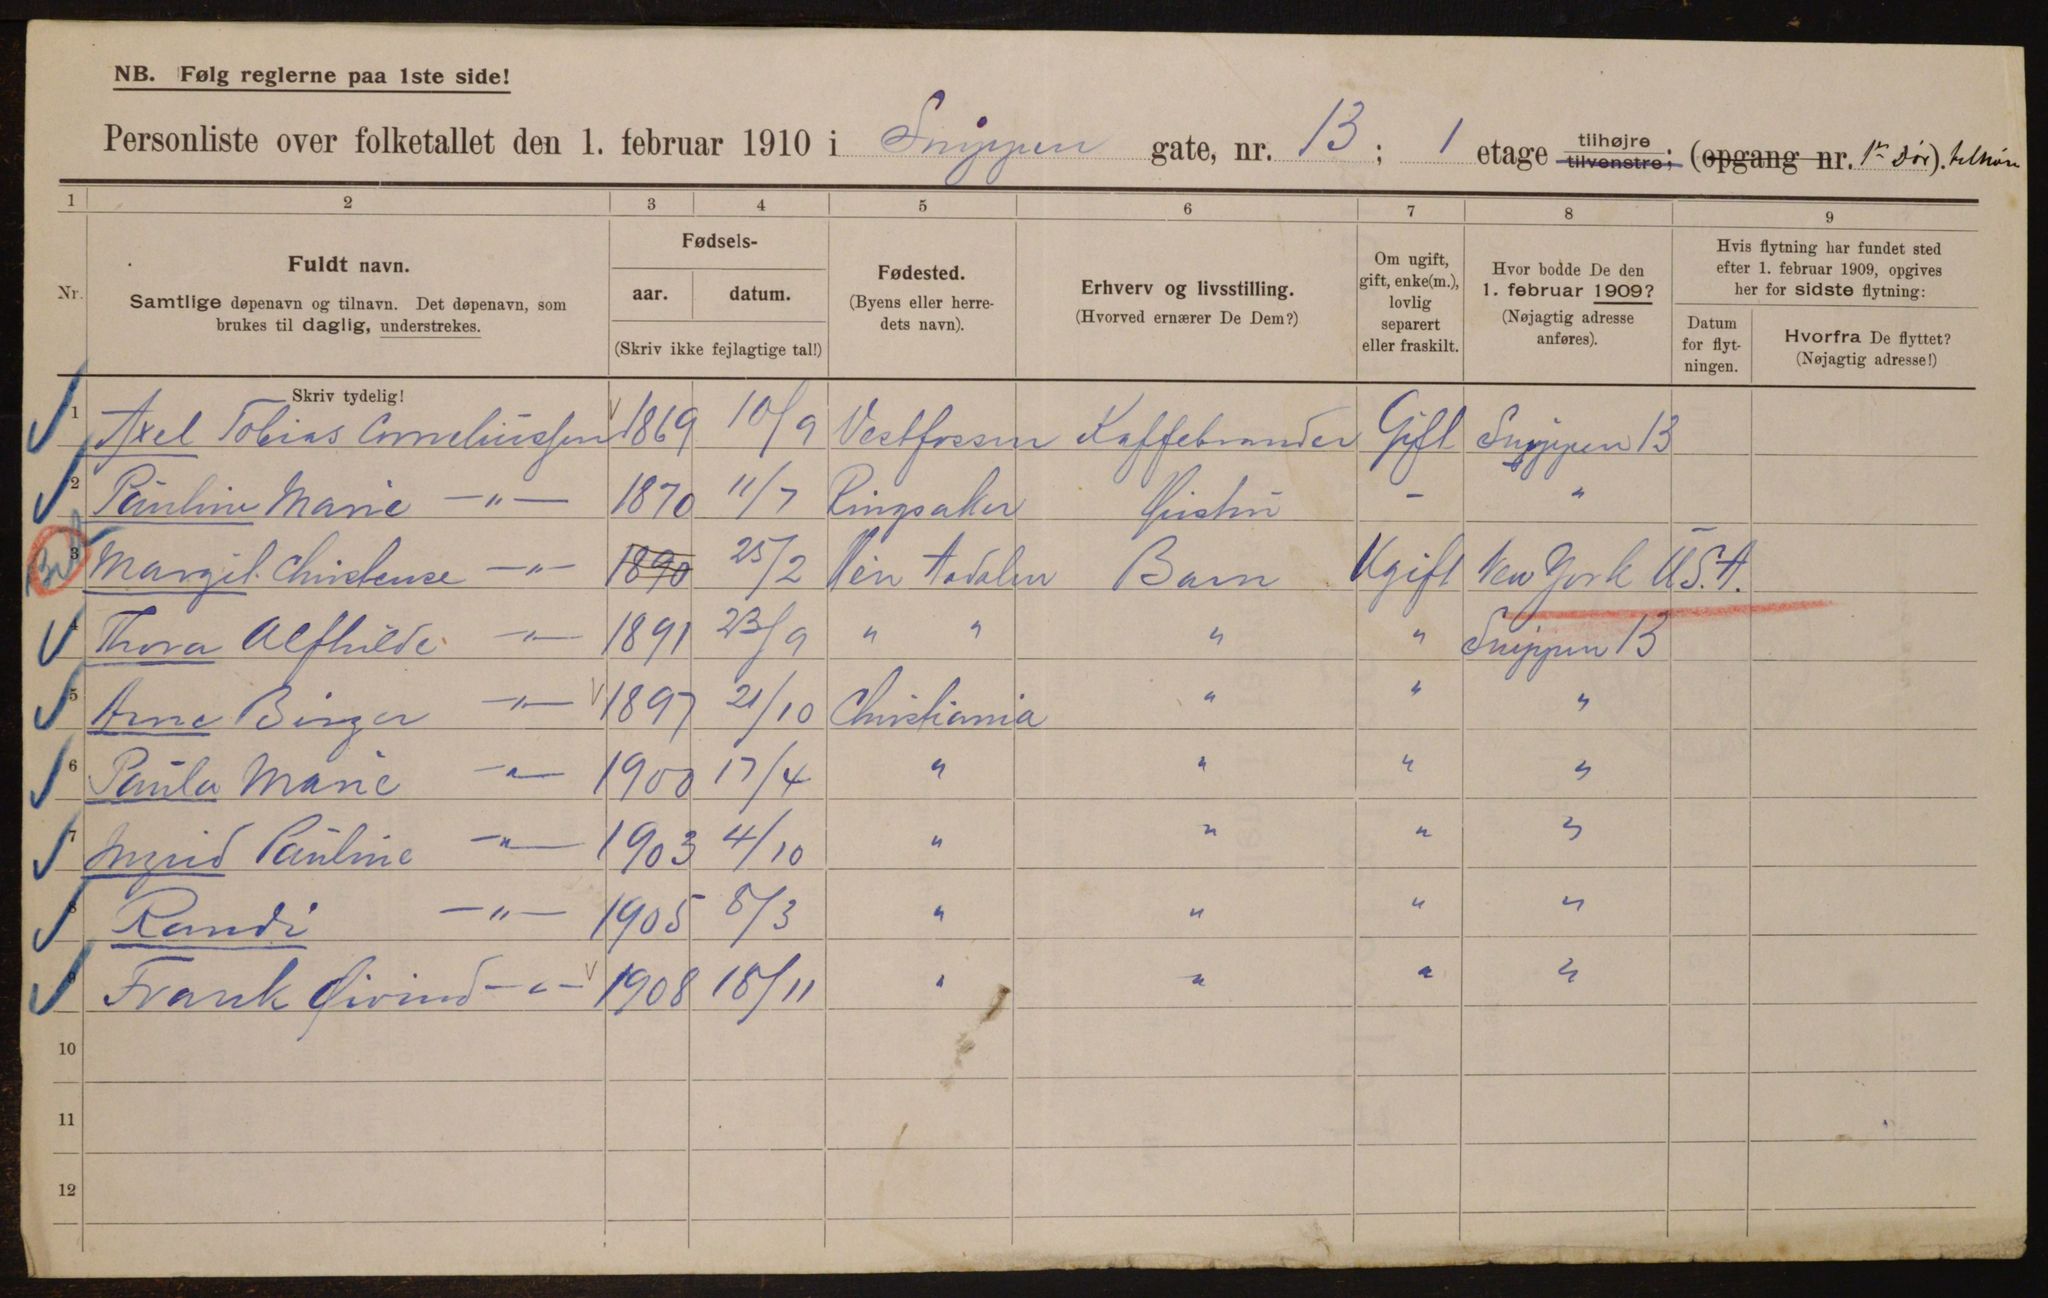 NB. Følg reglerne paa 1ste side!
Personliste over folketallet den 1. februar 1910 i Snippen gate, nr. 13; 1 etage tilhøjre tilvenstre; (opgang nr. 1ste Dør). tilhøire
1 2 3 4 5 6 7 8 9
Nr.
Fuldt navn.
Samtlige døpenavn og tilnavn. Det døpenavn, som
brukes til daglig, understrekes.
Skriv tydelig!
Fødsels-
aar. datum.
(Skriv ikke fejlagtige tal!)
Fødested.
(Byens eller herre-
dets navn).
Erhverv og livsstilling.
(Hvorved ernærer De Dem?)
Om ugift,
gift, enke(m.),
lovlig
separert
eller fraskilt.
Hvor bodde De den
1. februar 1909?
(Nøjagtig adresse
anføres).
Hvis flytning har fundet sted
efter 1. februar 1909, opgives
her for sidste flytning:
Datum
for flyt-
ningen.
Hvorfra De flyttet?
(Nøjagtig adresse!)
1 Axel Tobias Corneliussen 1869 10/9 Vestfossen Kaffebrander Gift Snippen 13
2 Pauline Marie —"— 1870 11/7 Ringsaker Hustru - "
3 Margit Christense —"— 1890 25/2 Nén Aadalen Barn Ugift New York U.S.A.
4 Thora Alfhilde —"— 1891 23/9 " " " " Snippen 13
5 Arne Birger —"— 1897 21/10 Christiania " " "
6 Paula Marie —"— 1900 17/4 " " " "
7 Ingrid Pauline —"— 1903 4/10 " " " "
8 Randi —"— 1905 8/3 " " " "
9 Frank Øivind —"— 1908 18/11 " " " "
10
11
12